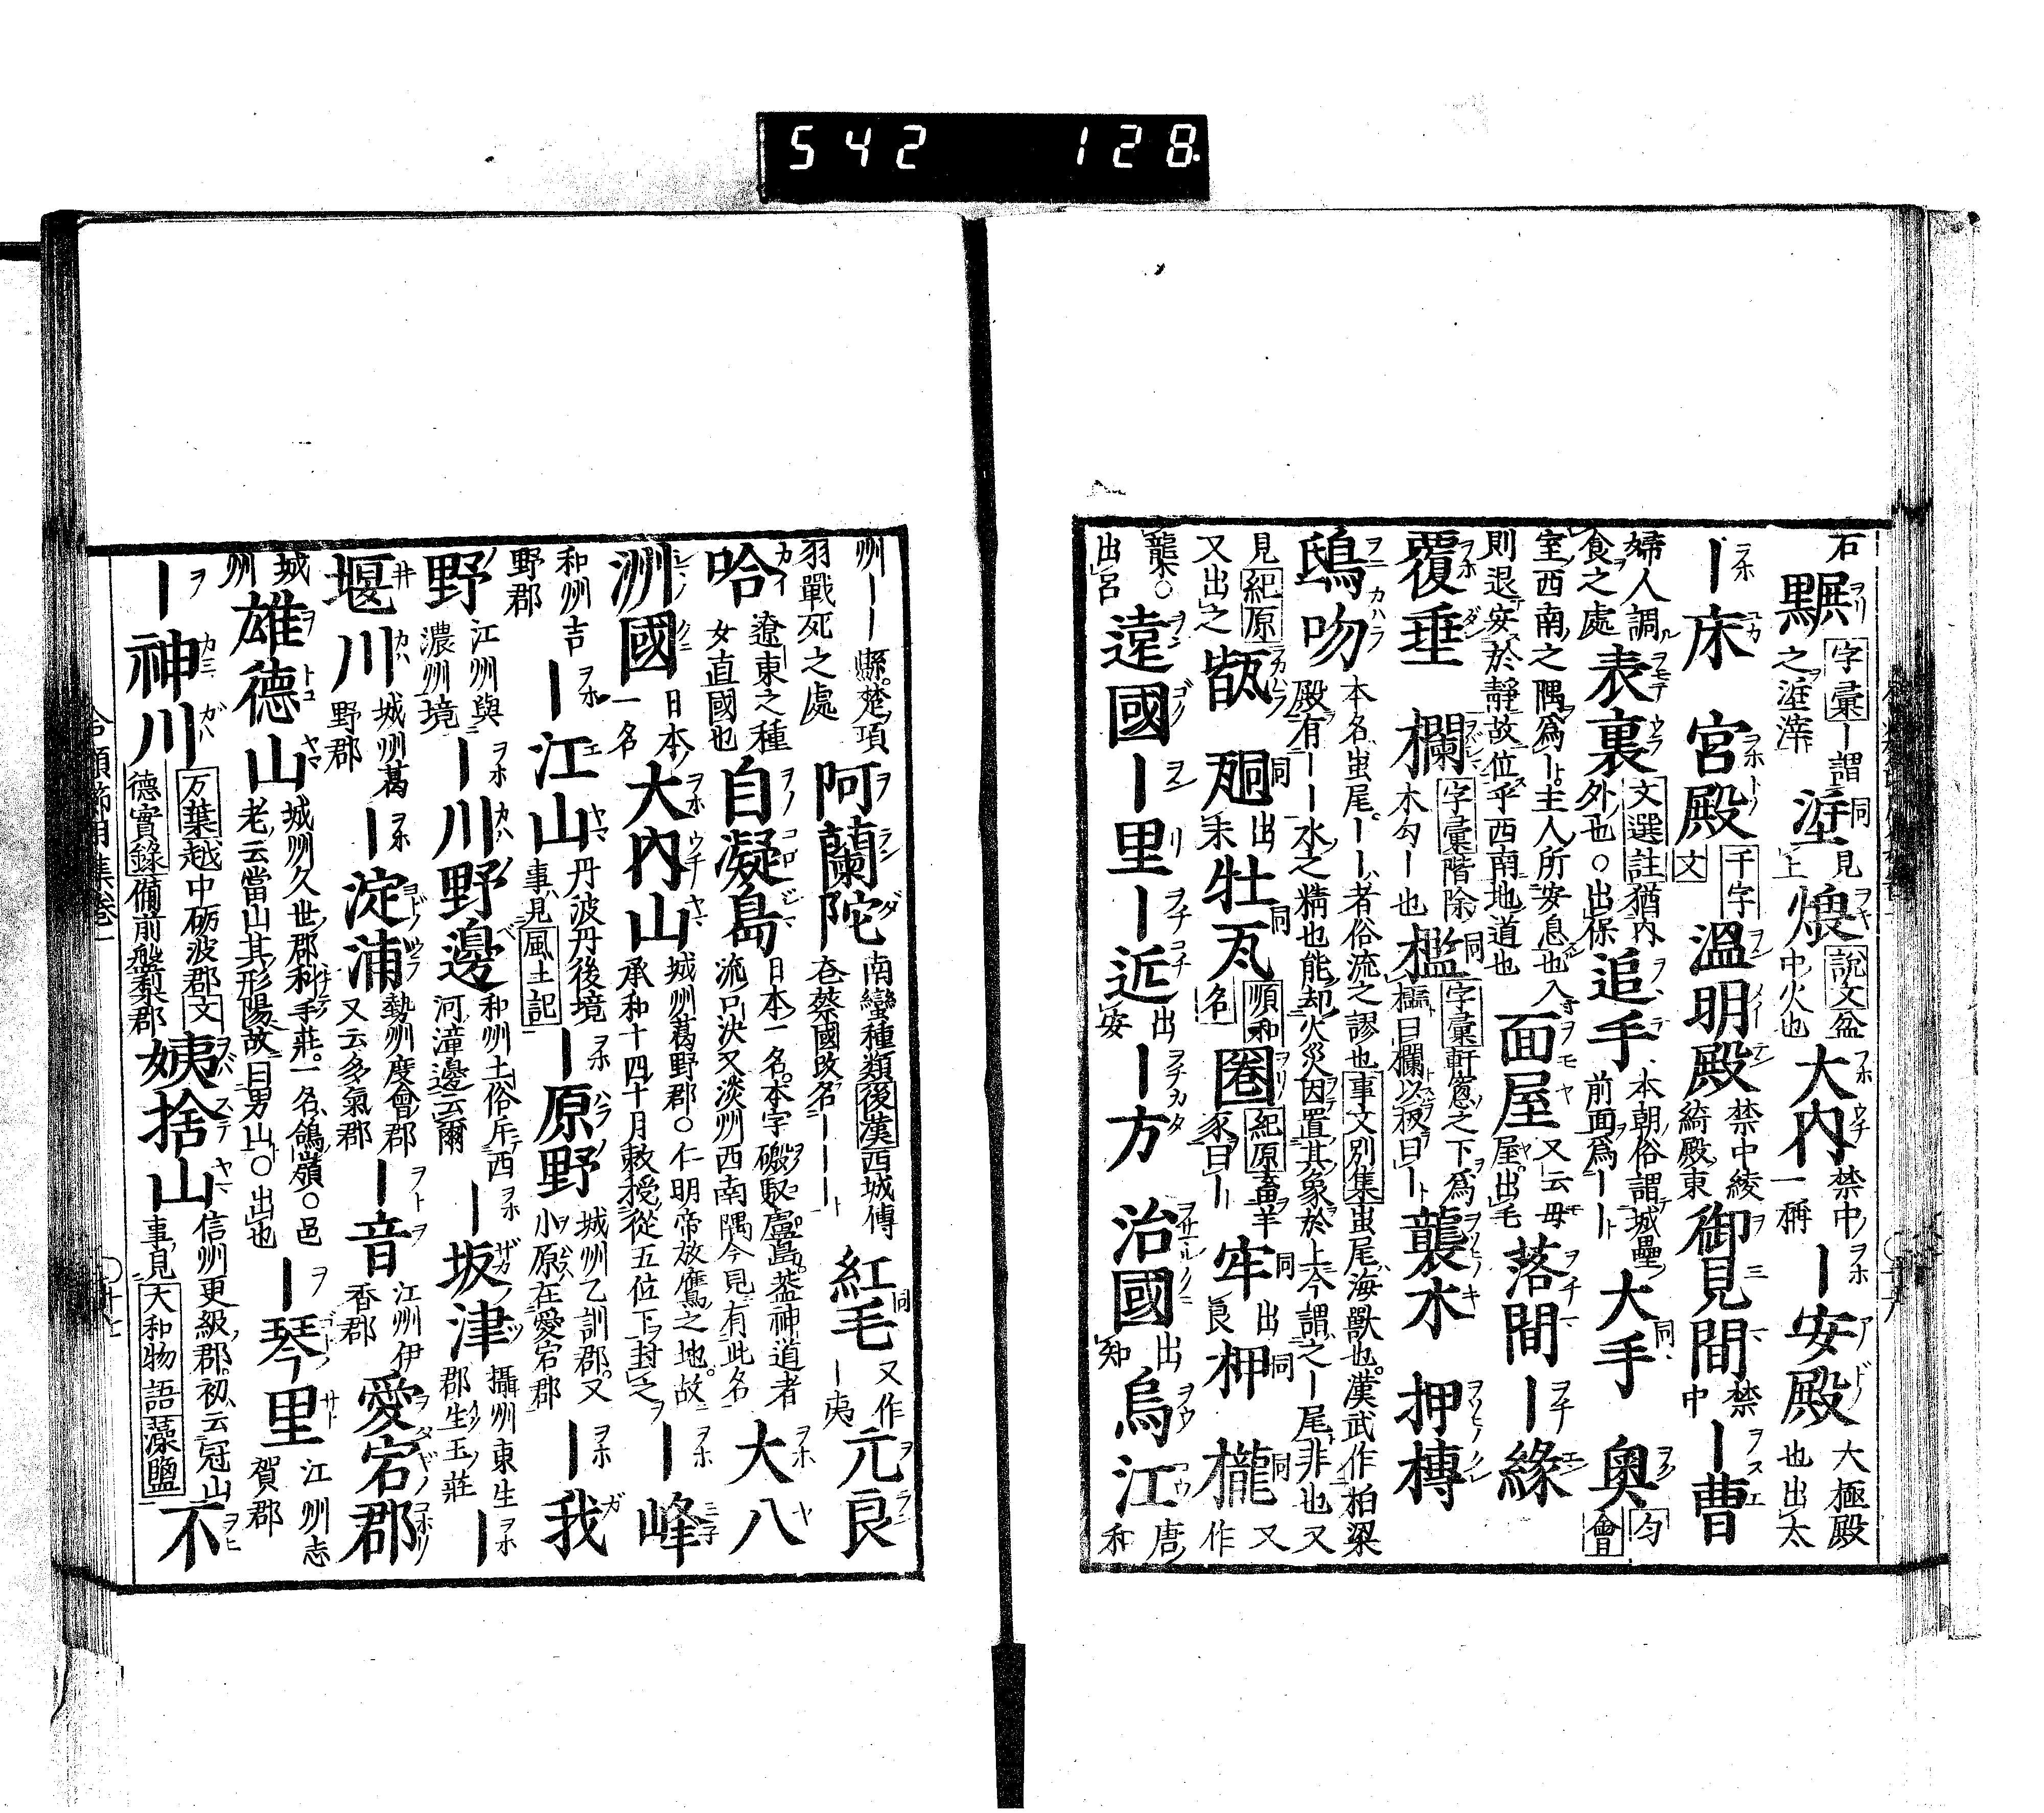 542 128
石 䵤 字彙ー謂之滓滓 𡋯 同見上 煨 說文盆中火也 大內 禁中一稱 ー安殿 大極殿也出太
ー床 宮殿 千字文 溫明殿 禁中綾綺殿東 御見間 禁中 ー曹
婦人調食之處 表裏 文選註猶內外也○出保 追手 本朝俗謂城壘前面爲ーー 大手 同 奧 勻會
室西南之隅爲ー主人所安息也入則退安於靜故位乎西南地道也 面屋 又云母屋出毛 落間 ー緣
覆垂 欄 字彙階除木勾ー也 檻 同字彙軒窻之下爲櫺曰欄以板曰ー 襲木 押槫
鴟吻 本名蚩尾ーー者俗流之謬也事文別集蚩尾海獸也漢武作柏梁殿有ーー水之精也能却火災因置其象於上今謂之ー尾非也又
見紀原又出之 㼧 同出朱 牡瓦 同順和名 圈 紀原畜羊豕曰ー 牢 同出良 柙 同 櫳 同又作
襱○出呂 遠國 ー里 ー近 出安 ー方 治國 出知 烏江 唐和
州ーー縣楚項羽戰死之處 阿蘭陀 南蠻種類後漢西城傳奄蔡國改名ーーー 紅毛 同又作ー夷 元良
哈 遼東之種女直國也 自凝島 日本一名本字磤馭盧島葢神道者流口決又淡州西南隅今見有此名 大八
洲國 日本一名 大內山 城州葛野郡○仁明帝放鷹之地故承和十四十月敕授從五位下封之 ー峰
和州吉野郡 ー江山 丹波丹後境事見風土記 ー原野 城州乙訓郡又小原在愛宕郡 ー我
野 江州與濃州境 ー川野邊 和州土俗斥西河潼邊云爾 ー坂津 攝州東生郡生玉莊 ー
堰川 城州葛野郡 ー淀浦 勢州度會郡又云多氣郡 ー音 江州伊香郡 愛宕郡
城州 雄德山 城州久世郡科手莊一名鴿嶺○邑老云當山其形陽故曰男山○出也 ー琴里 江州志賀郡
ー神川 万葉越中砺波郡文德實錄備前盤梨郡 姨捨山 信州更級郡初云冠山事見大和物語藻鹽 不
合類節用集卷一